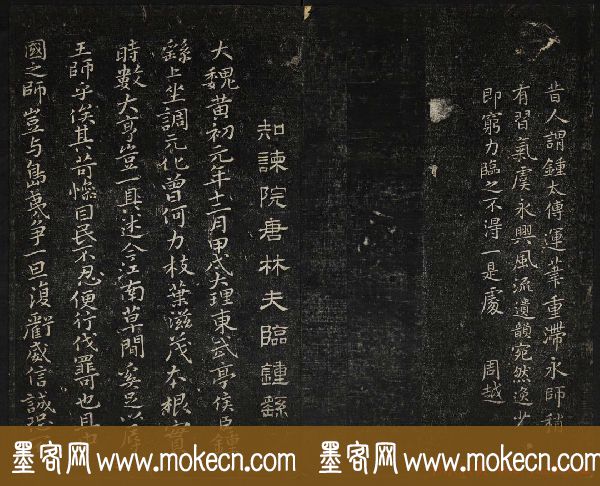 昔人謂鍾太傅運筆重滯永師稍
有習氣虞永興風流遺韻宛然逸少
即窮力臨之不得一是處 周越
知諫院唐林夫臨鍾繇
大魏黃初元年十二月甲戌大理東武亭侯臣鍾
繇上坐調元化曾何力枝葉滋茂本根實
時數大亨豈一具述今江南草間妄足以辱
王師乎俟其苛慘自民不忍便行伐罪可也且
國之師豈与島夷爭一旦復虧威信誠
墨客网 www.mokecn.com 墨客网 www.mokecn.com